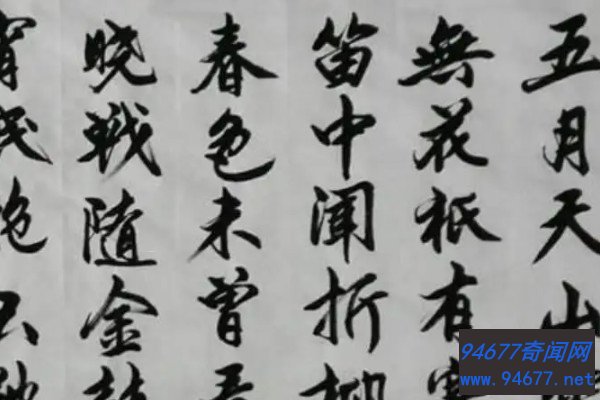 五月天山
無花祇有寒
笛中聞折柳
春色未曾看
曉戰隨金鼓
宵眠抱玉
94677奇闻网
www.94677.net